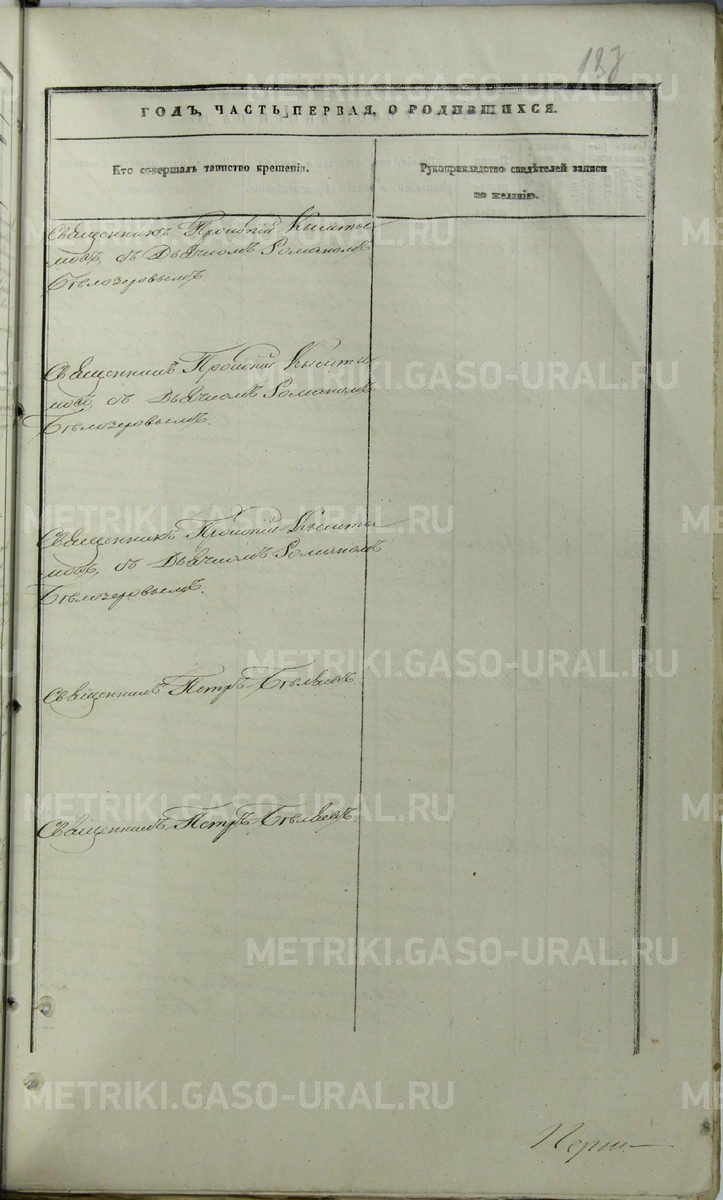 187
ГОДЪ, ЧАСТЬ ПЕРВАЯ, О РОДИВШИХСЯ.
Кто совершалъ таинство крещенія.
Рукоприкладство свидѣтелей записи
по желанію.
Священникъ Прокопій Кышты-
мовъ, съ Дьячкомъ Романомъ
Бѣлозеровымъ.
Священникъ Прокопій Кышты
мовъ, съ Дьячкомъ Романомъ
Бѣлозеровымъ.
Священникъ Прокопій Кышты
мовъ, съ Дьячкомъ Романомъ
Бѣлозеровымъ.
Священникъ Петръ Бѣляевъ.
Священникъ Петръ Бѣляевъ.
METRIKI.GASO-URAL.RU